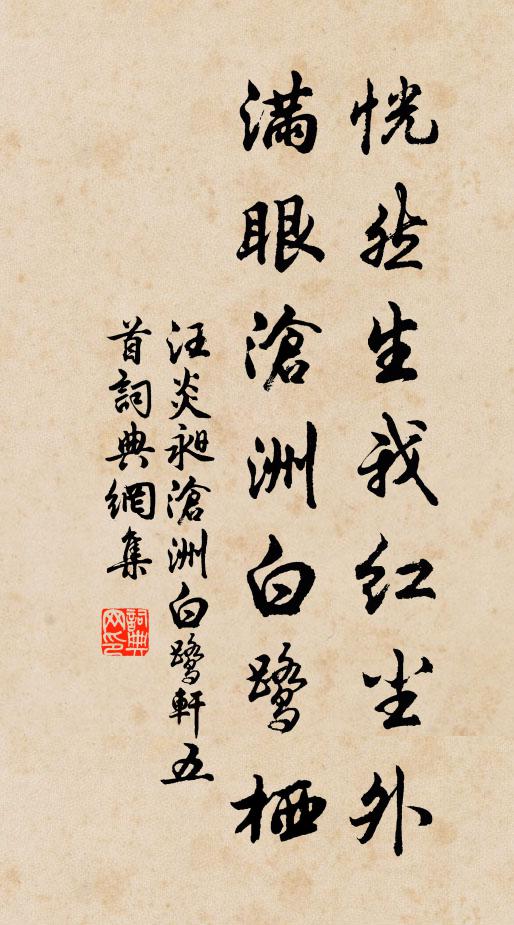 恍然生我红尘外
满眼滄洲白鹭栖
汪炎昶滄洲白鹭軒五
首詞典網集
詞典
网印